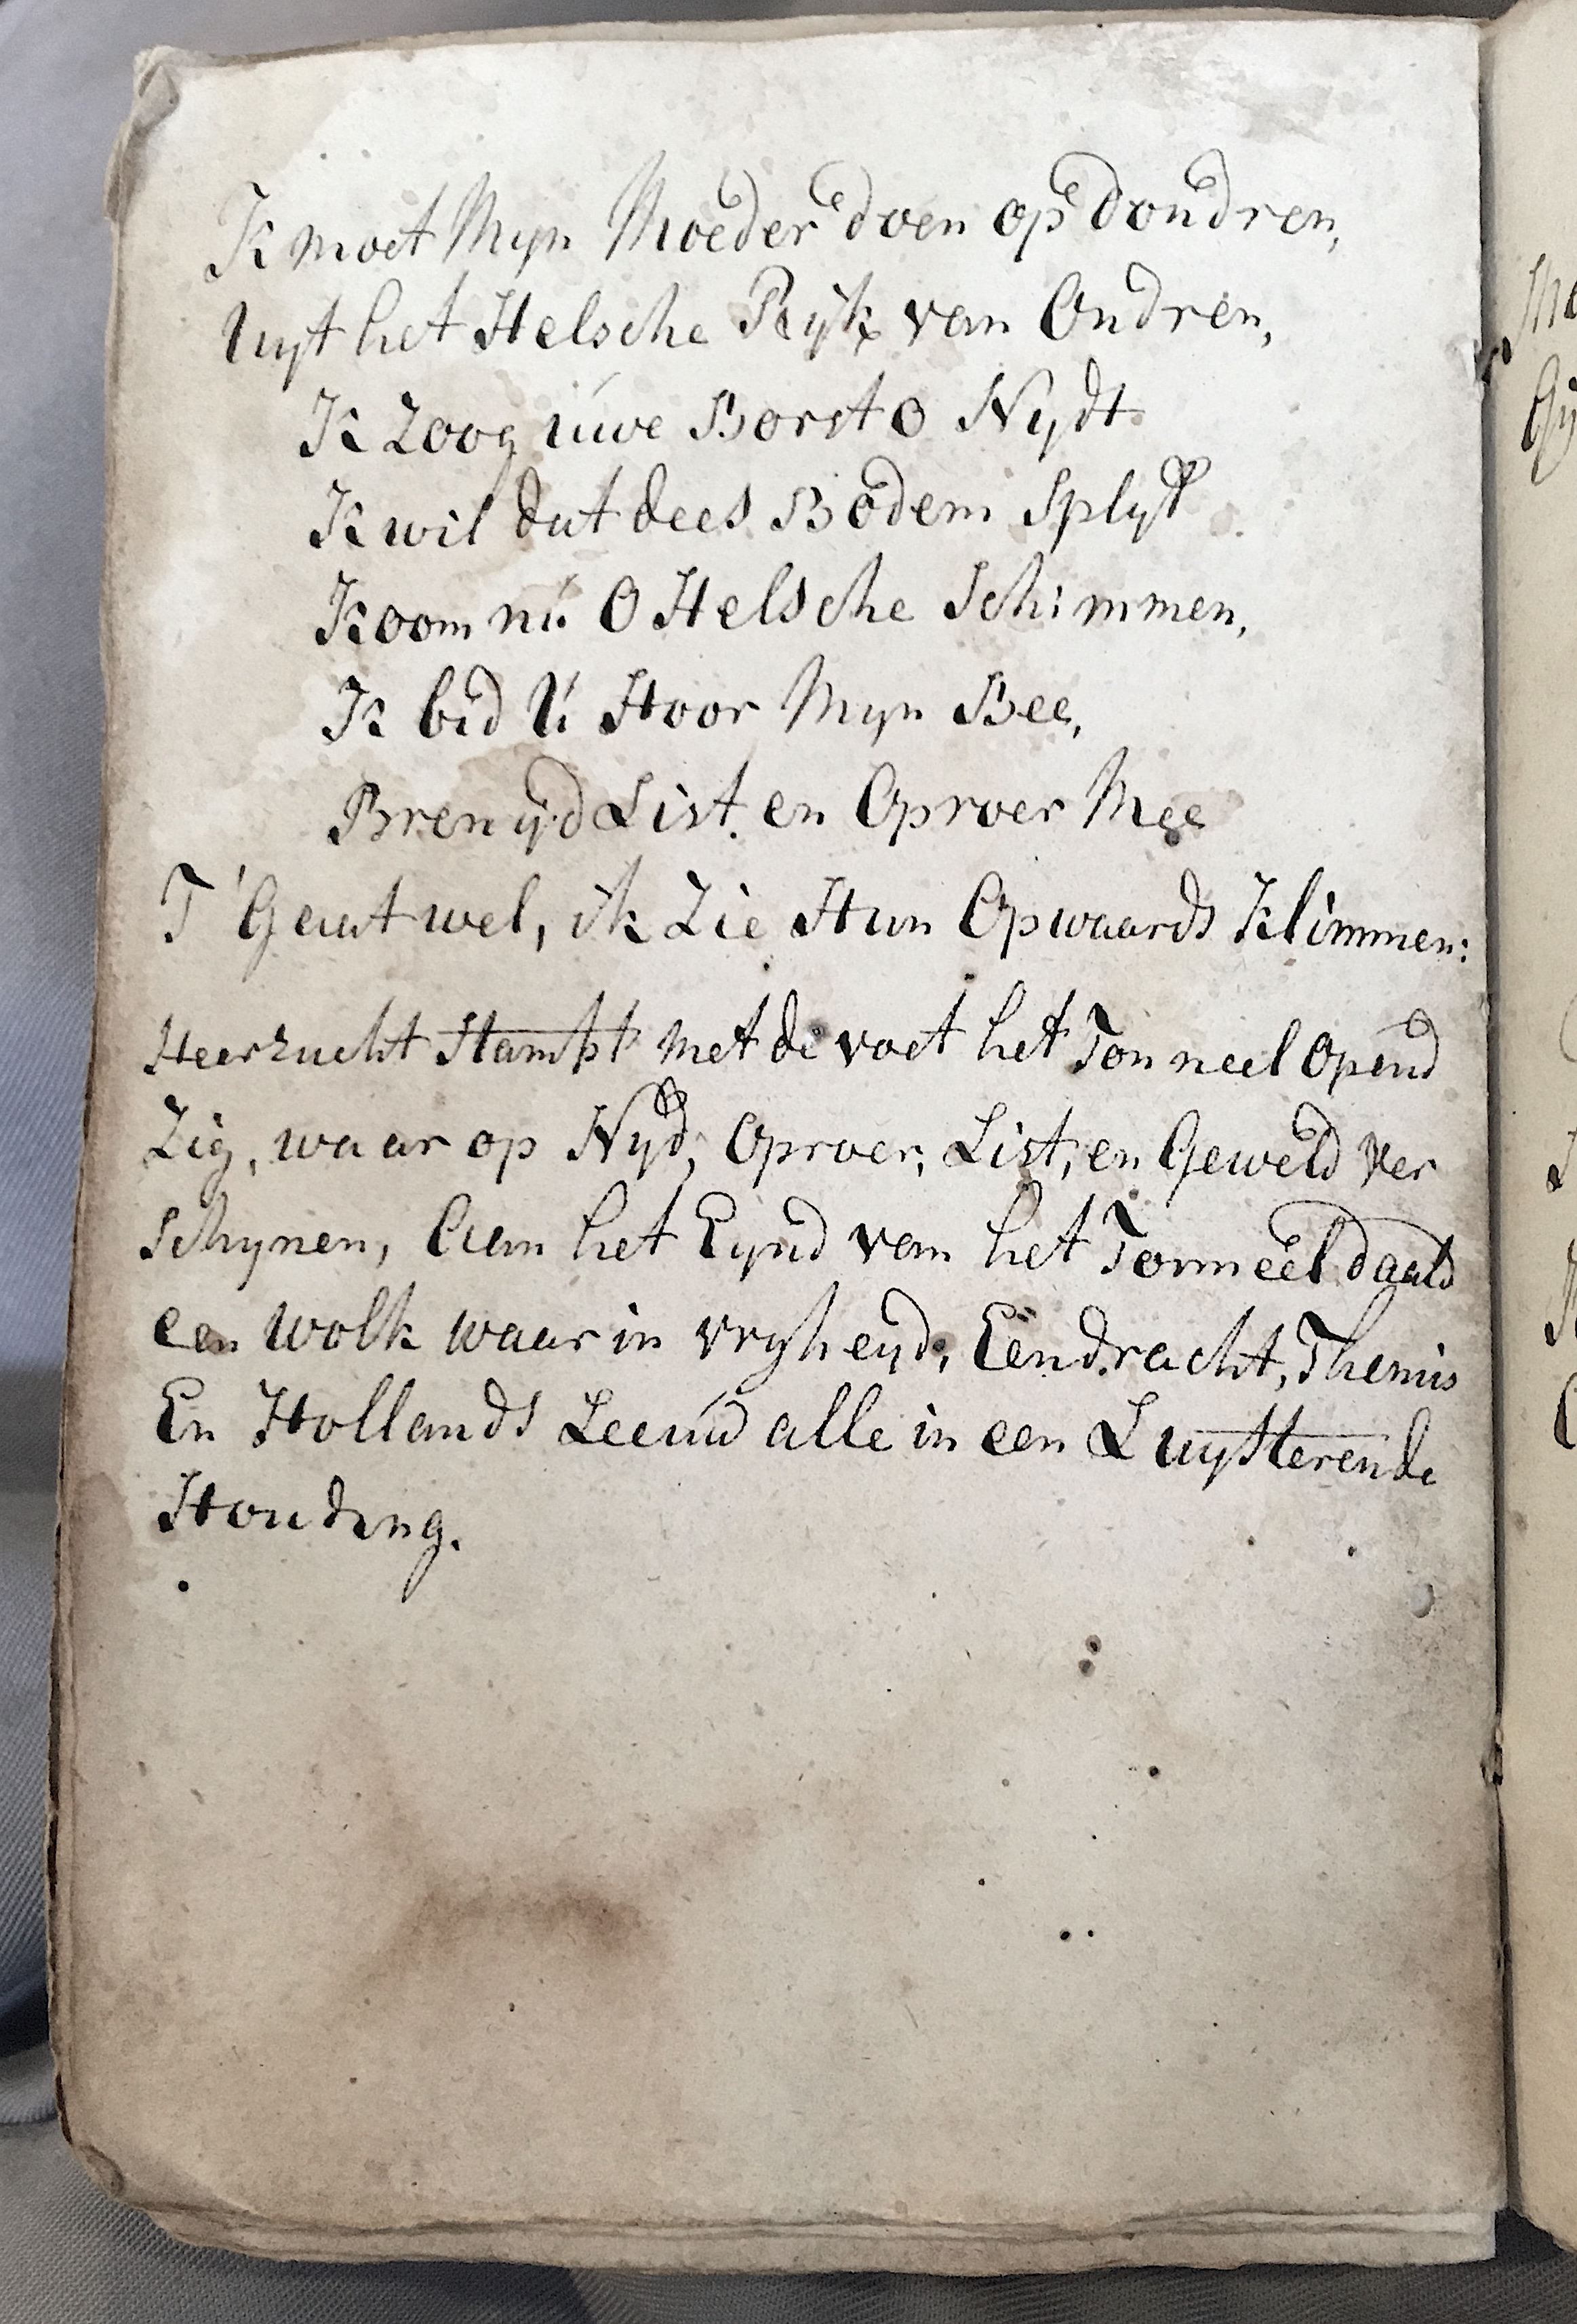 Ik moet Myn Moeder doen op dondren,
Uyt het Helsche Ryk van Ondren,
Ik Zoog úwe Borst o Nydt
Ik wil dat dees Bodem Splyt
Koom nú O Helsche Schimmen,
Ik bid Ú Hoor Myn Bee,
Bren yd List en Oproer Mee
T' Gaat wel, ik Zie Hun Opwaards Klimmen:
Heerzucht Stampt met de voet het Tonneel Opend
Zig, waar op Nyd, Oproer, List, en Geweld Ver
Schynen, Aan het Eynd van het Tonneel daald
een Wolk waar in Vryheyd, Eendracht, Themis
En Hollands Leeúw alle in een Luysterende
Houding.